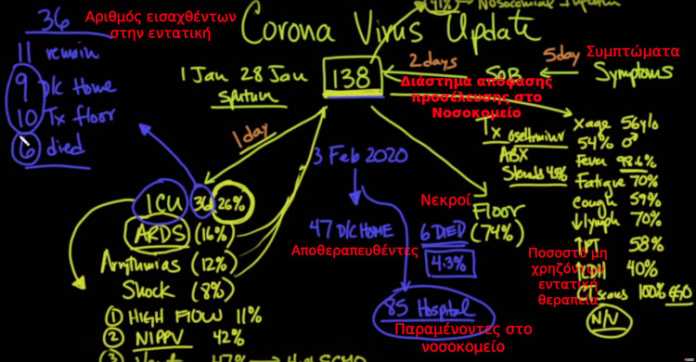 36
Αριθμός εισαχθέντων
στην εντατική
11 remain
9 D/C Home
10 Tx floor
6 died
Corona Virus Update
41%
Nosocomial
1 Jan 28 Jan
sputum
138
2 days
SOB
5 day
Συμπτώματα
Symptoms
Διάστημα απόφασης
προσέλευσης στο
Νοσοκομείο
1 day
3 Feb 2020
Tx oseltamivir
ABX
Steroids 45%
x̄ age 56 y/o
54% ♂
Fever 98.6%
Fatigue 70%
Cough 59%
↓lymph 70%
↑PT 58%
↑LDH 40%
CT scans 100%
N/V
ICU 36 26%
ARDS (16%)
Arrythmias (12%)
Shock (8%)
① HIGH FLOW 11%
② NIPPV 42%
③ 47% → ECMO
47 D/C HOME
Αποθεραπευθέντες
Νεκροί
6 DIED
4.3%
Floor
(74%)
Ποσοστό μη
χρηζόντων
εντατική
θεραπεία
85 Hospital
Παραμένοντες στο
νοσοκομείο